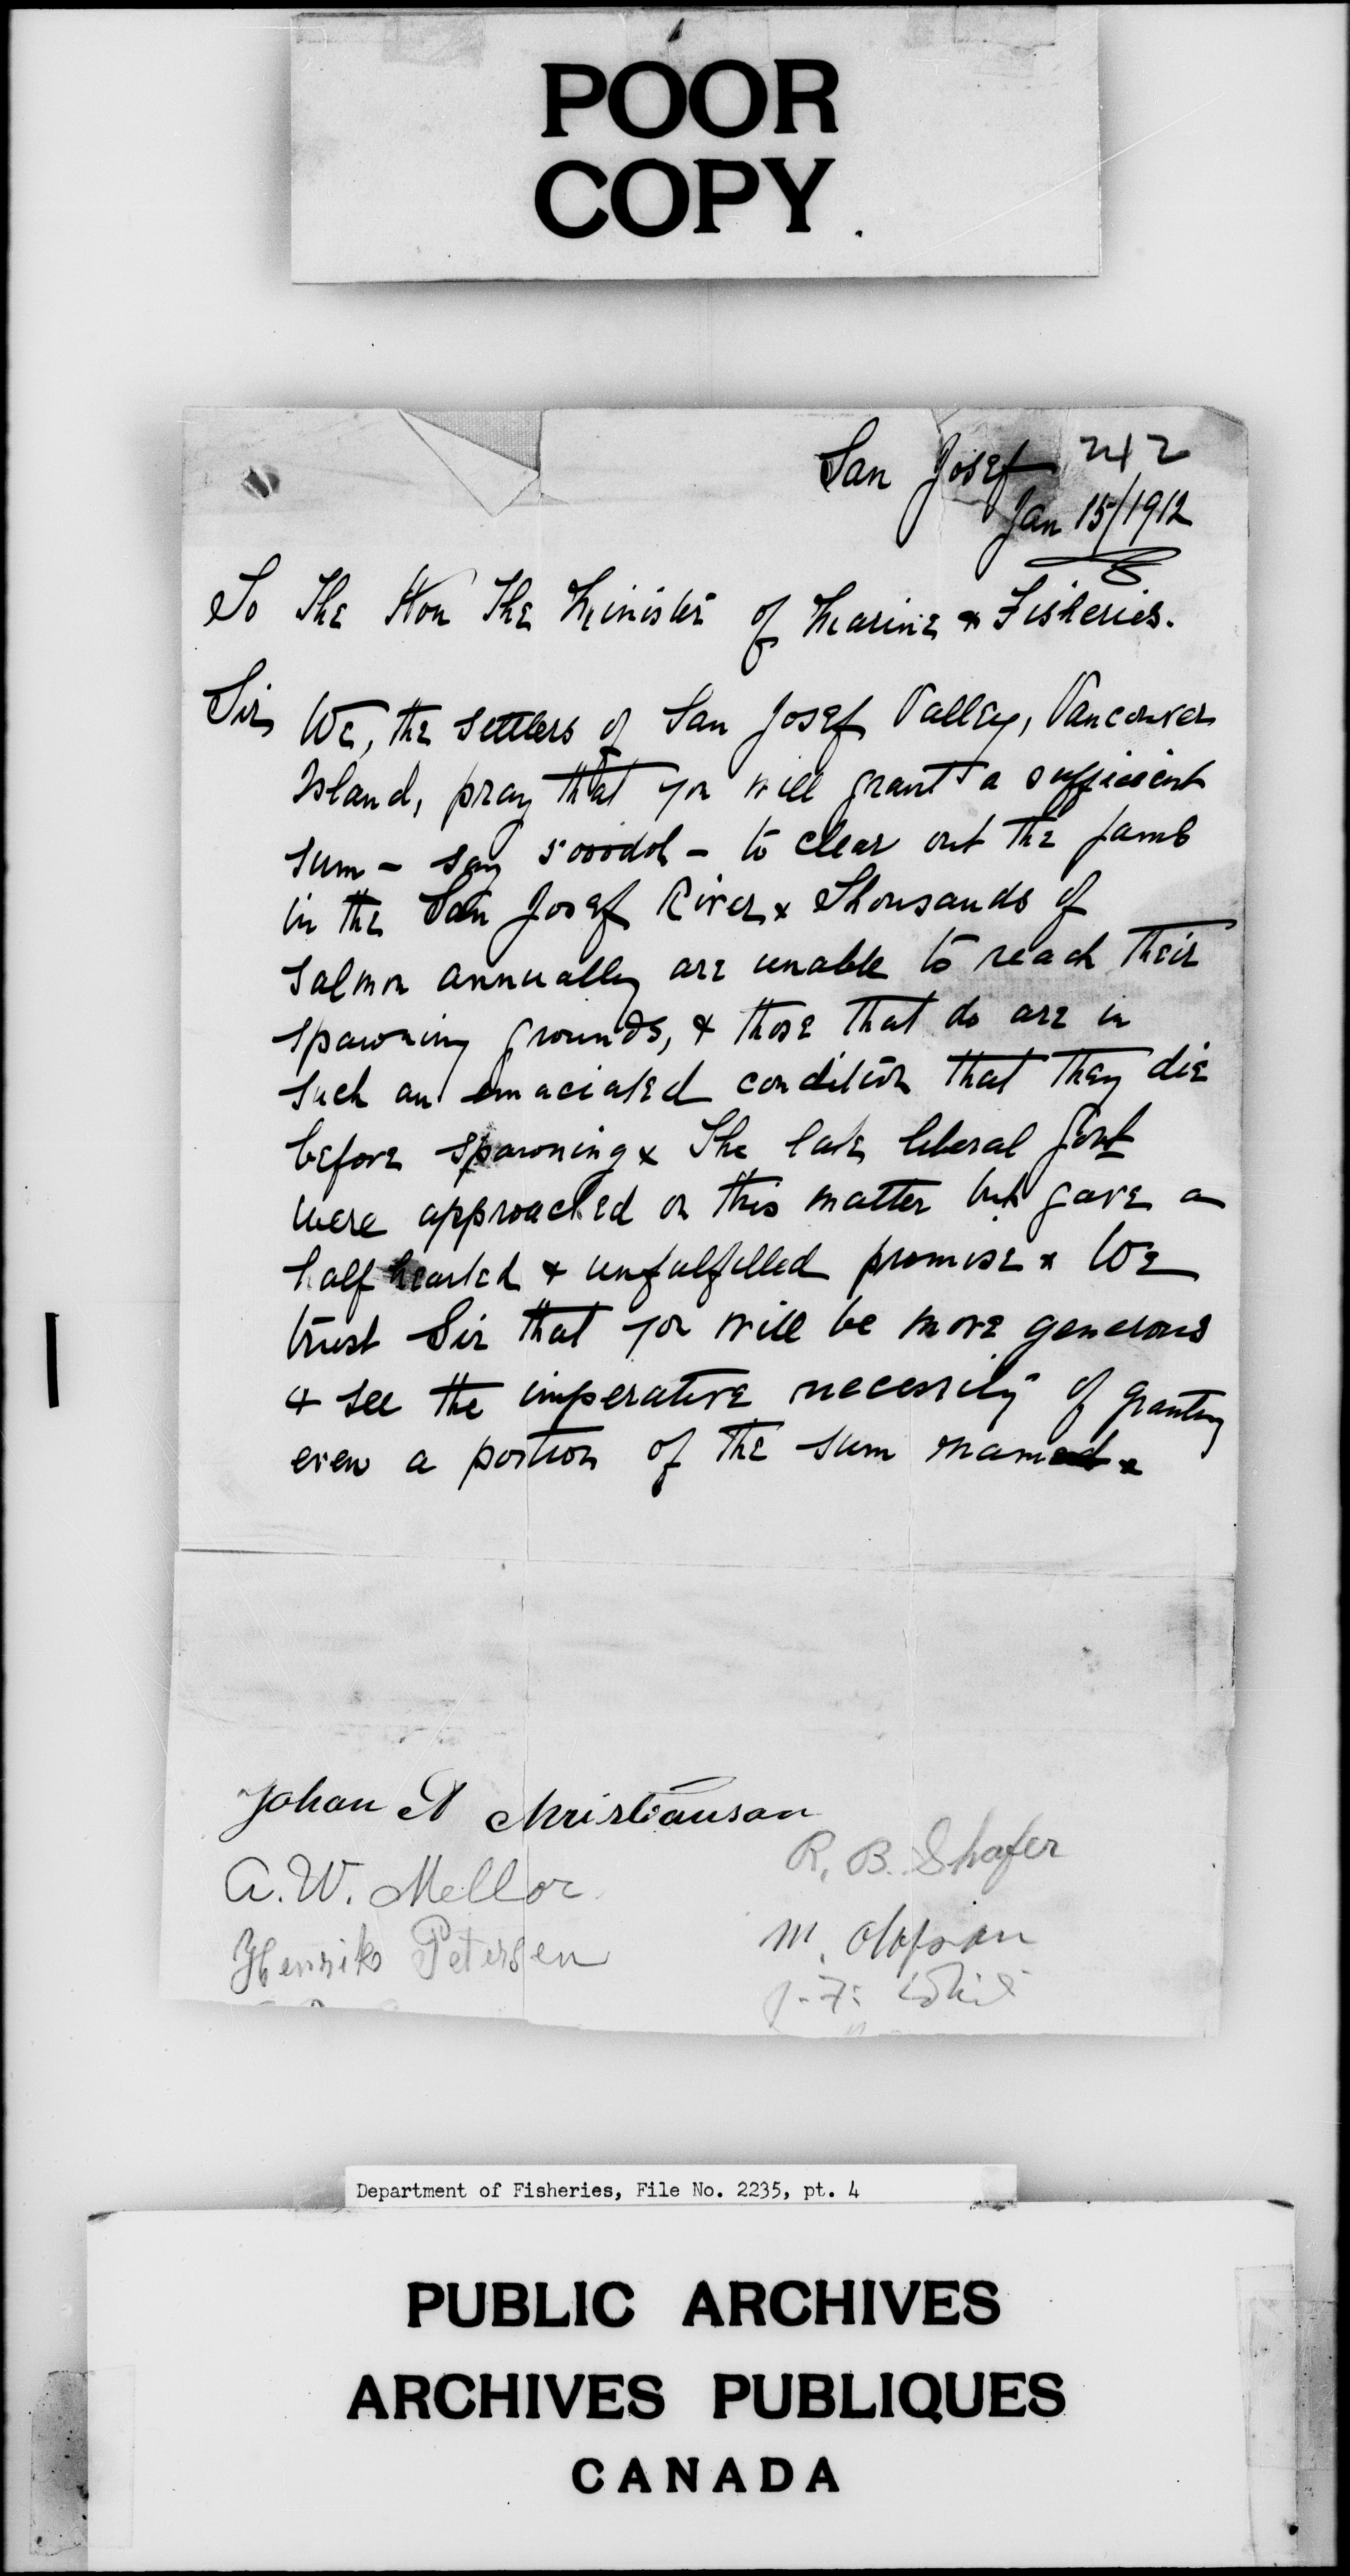 POOR
COPY
San Josef 242
Jan 15/1912
To The Hon The Minister of Marine & Fisheries.
Sir We, the settlers of San Josef Valley, Vancouver
Island, pray that you will grant a sufficient
sum - say 5000dol - to clear out the jamb
in the San Josef River x Thousands of
salmon annually are unable to reach their
spawning grounds, & those that do are in
such an emaciated condition that they die
before spawning x The late liberal Govt
were approached on this matter but gave a
half hearted & unfulfilled promise x We
trust Sir that you will be more generous
& see the imperative necessity of granting
even a portion of the sum named x
Johan A Christianson
R. B. Shafer
A. W. Mellor
M. Olofson
Henrik Petersen
J. F.
Department of Fisheries, File No. 2235, pt. 4
PUBLIC ARCHIVES
ARCHIVES PUBLIQUES
CANADA